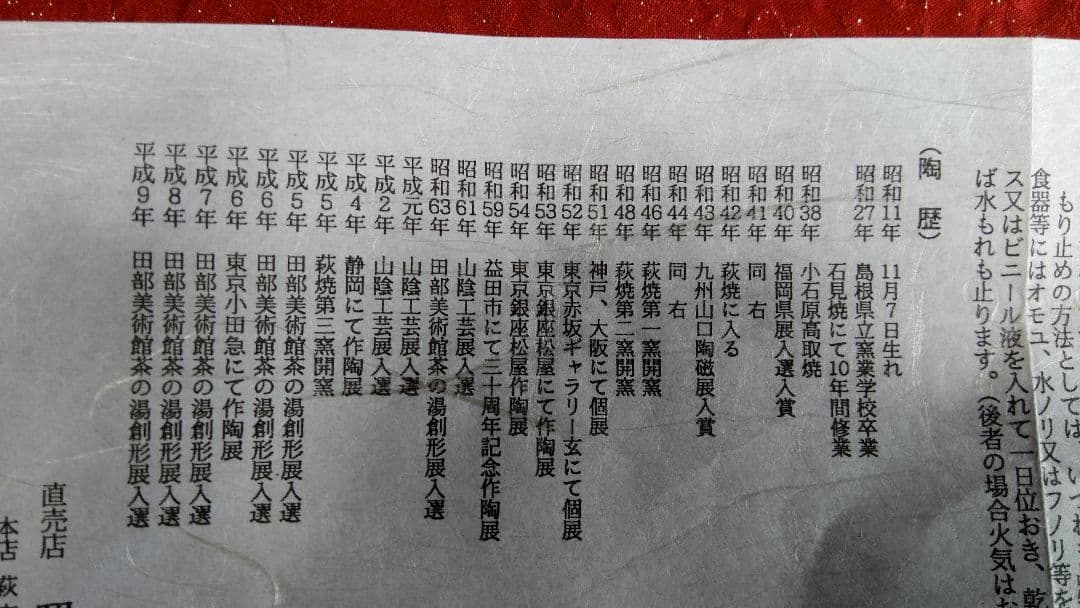 もり止めの方法としては、いづれも
食器等にはオモユ、水ノリ又はフノリ等を
ス又はビニール液を入れて一日位おき、乾
ば水もれも止ります。(後者の場合火気はお
(陶 歴)
昭和11年 11月7日生れ
昭和27年 島根県立窯業学校卒業
石見焼にて10年間修業
昭和38年 小石原高取焼
昭和40年 福岡県展入選入賞
昭和41年 同 右
昭和42年 萩焼に入る
昭和43年 九州山口陶磁展入賞
昭和44年 同 右
昭和46年 萩焼第一窯開窯
昭和48年 萩焼第二窯開窯
昭和51年 神戸、大阪にて個展
昭和52年 東京赤坂ギャラリー玄にて個展
昭和53年 東京銀座松屋にて作陶展
昭和54年 東京銀座松屋作陶展
昭和59年 益田市にて三十周年記念作陶展
昭和61年 山陰工芸展入選
昭和63年 田部美術館茶の湯創形展入選
平成元年 山陰工芸展入選
平成2年 山陰工芸展入選
平成4年 静岡にて作陶展
平成5年 萩焼第三窯開窯
平成5年 田部美術館茶の湯創形展入選
平成6年 田部美術館茶の湯創形展入選
平成6年 東京小田急にて作陶展
平成7年 田部美術館茶の湯創形展入選
平成8年 田部美術館茶の湯創形展入選
平成9年 田部美術館茶の湯創形展入選
直売店
本店 萩